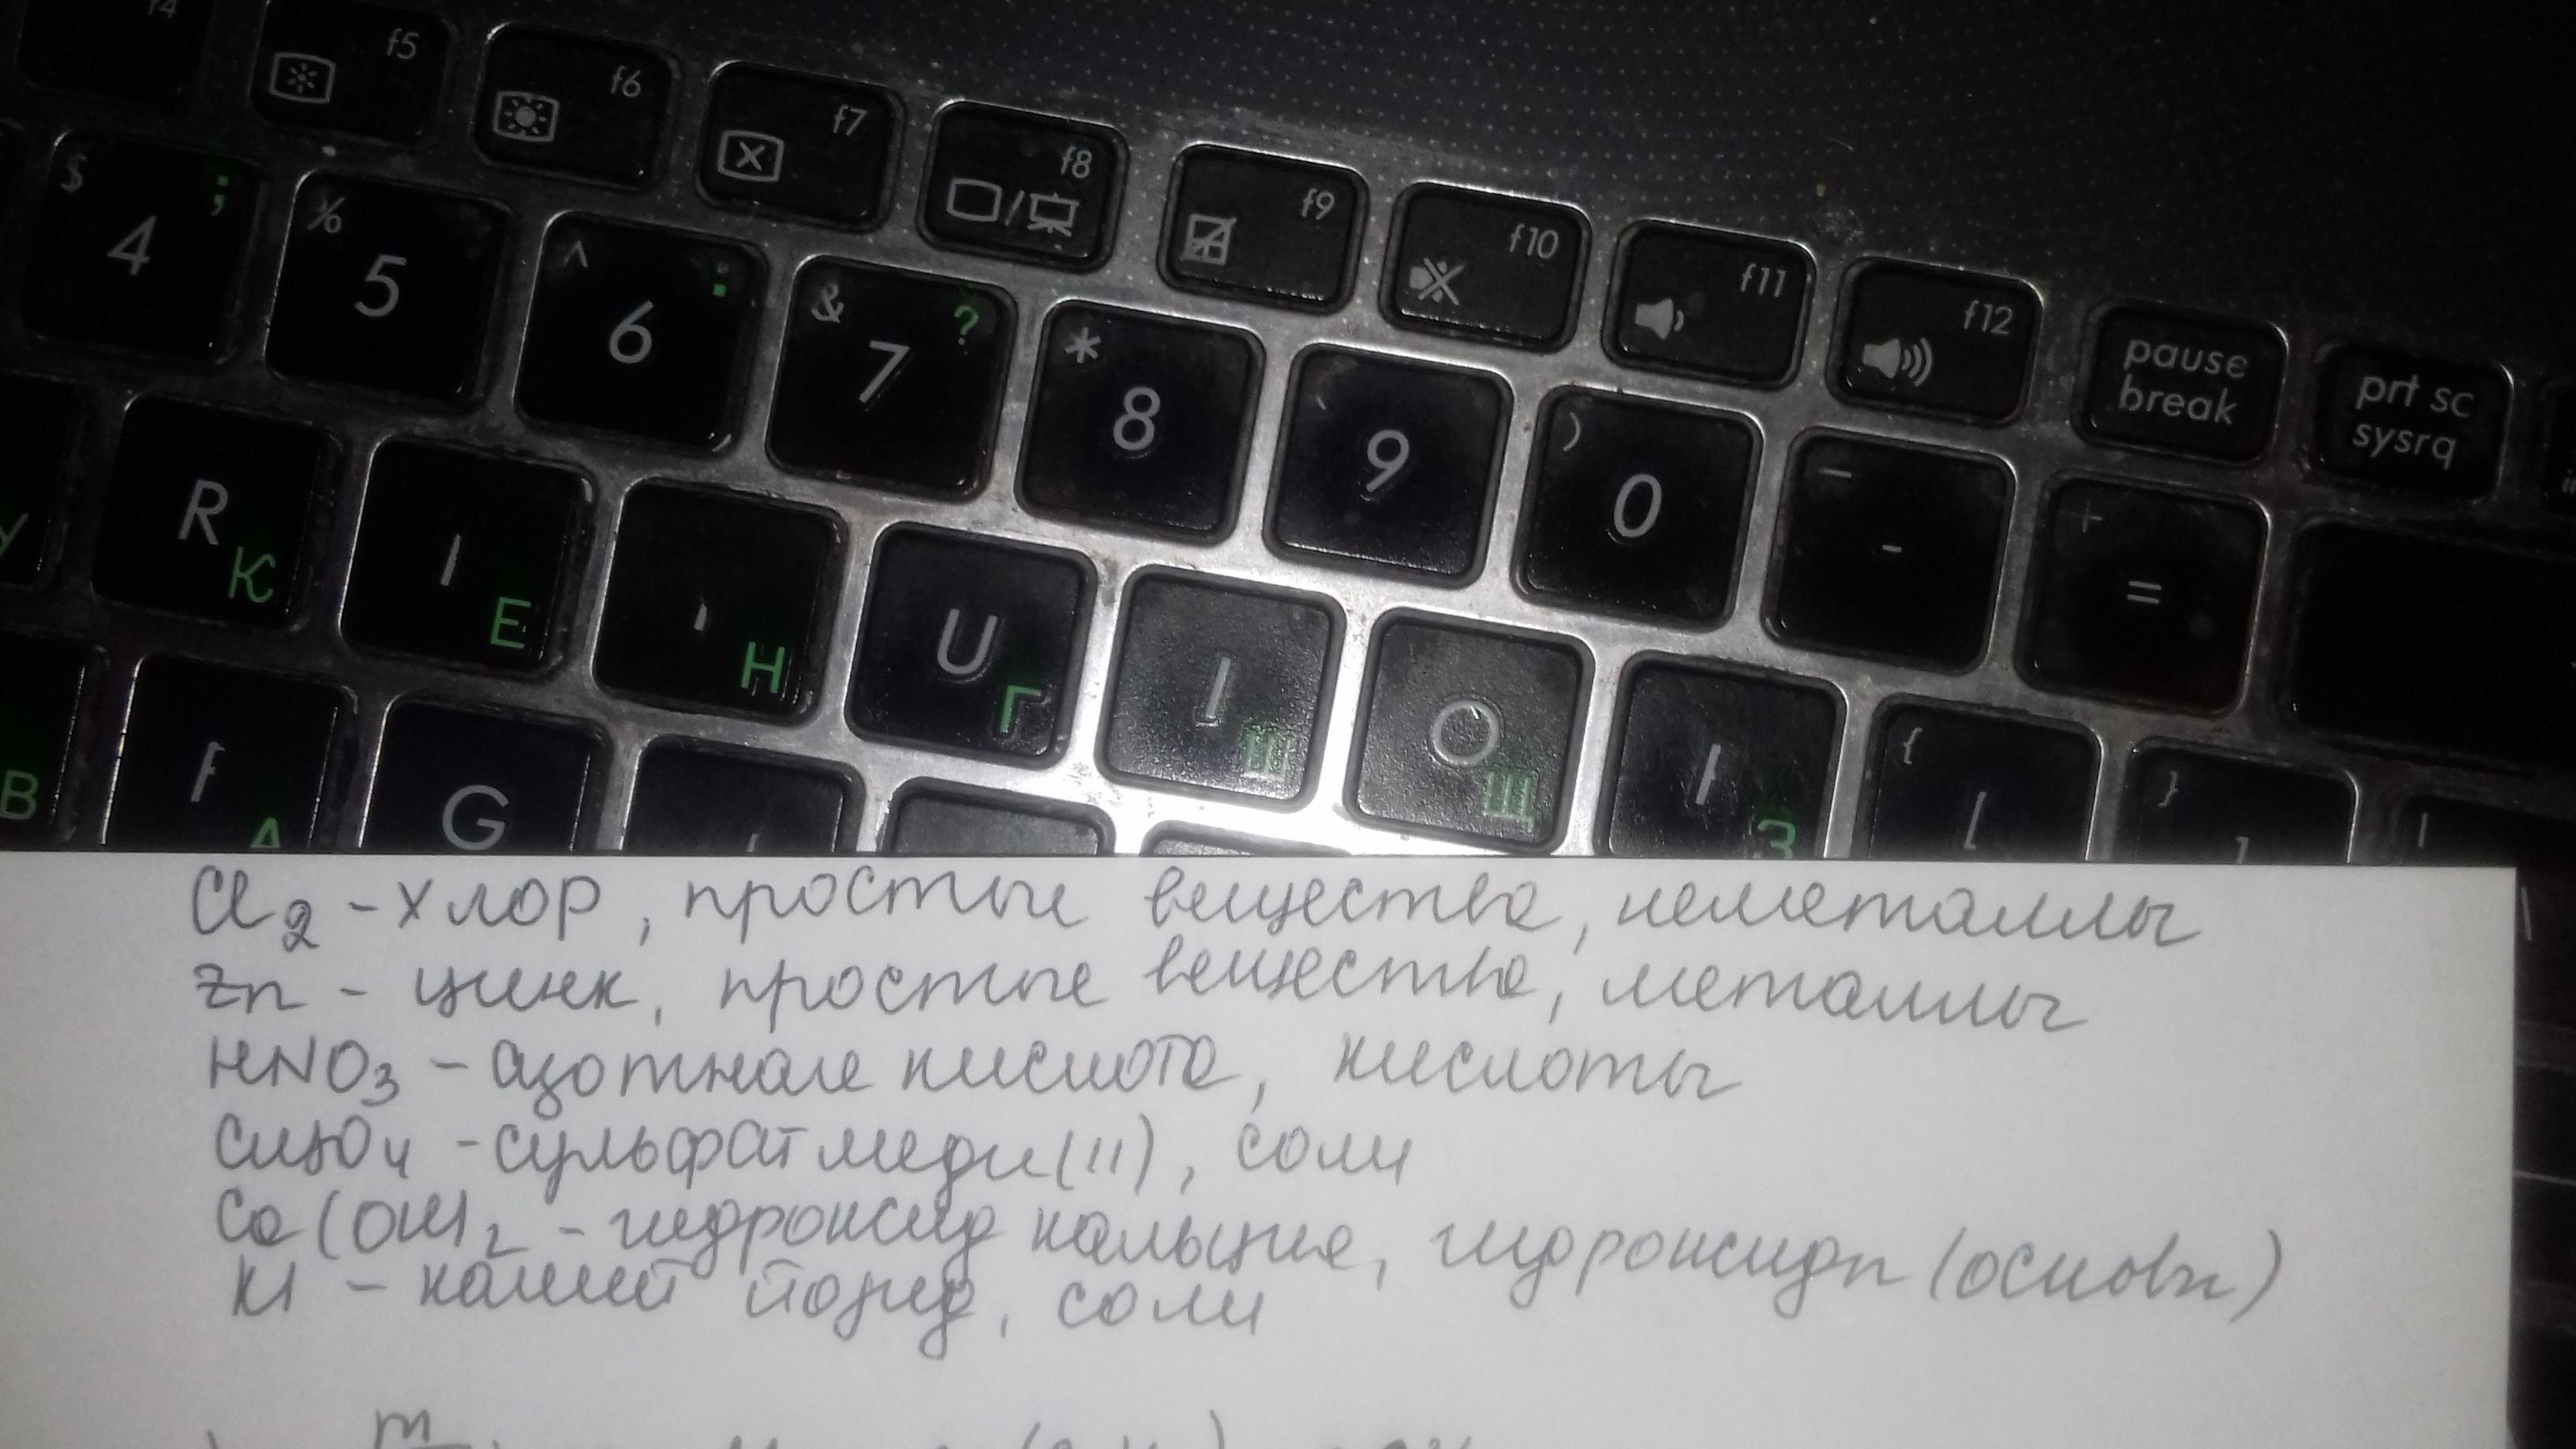 f4
f5 f6 f7 f8 f9 f10 f11 f12 pause break prt sc sysrq
$ 4 ; % 5 ^ 6 : & 7 ? * 8 9 ) 0 _ - + =
У R К Е Н U Г I Ш O Щ З { [ } ]
В А G
Cl2 - хлор, простые вещества, неметаллы
Zn - цинк, простые вещества, металлы
HNO3 - азотная кислота, кислоты
CuSO4 - сульфат меди (II), соли
Ca(OH)2 - гидроксид кальция, гидроксиды (основы)
KI - калий йодид, соли
m